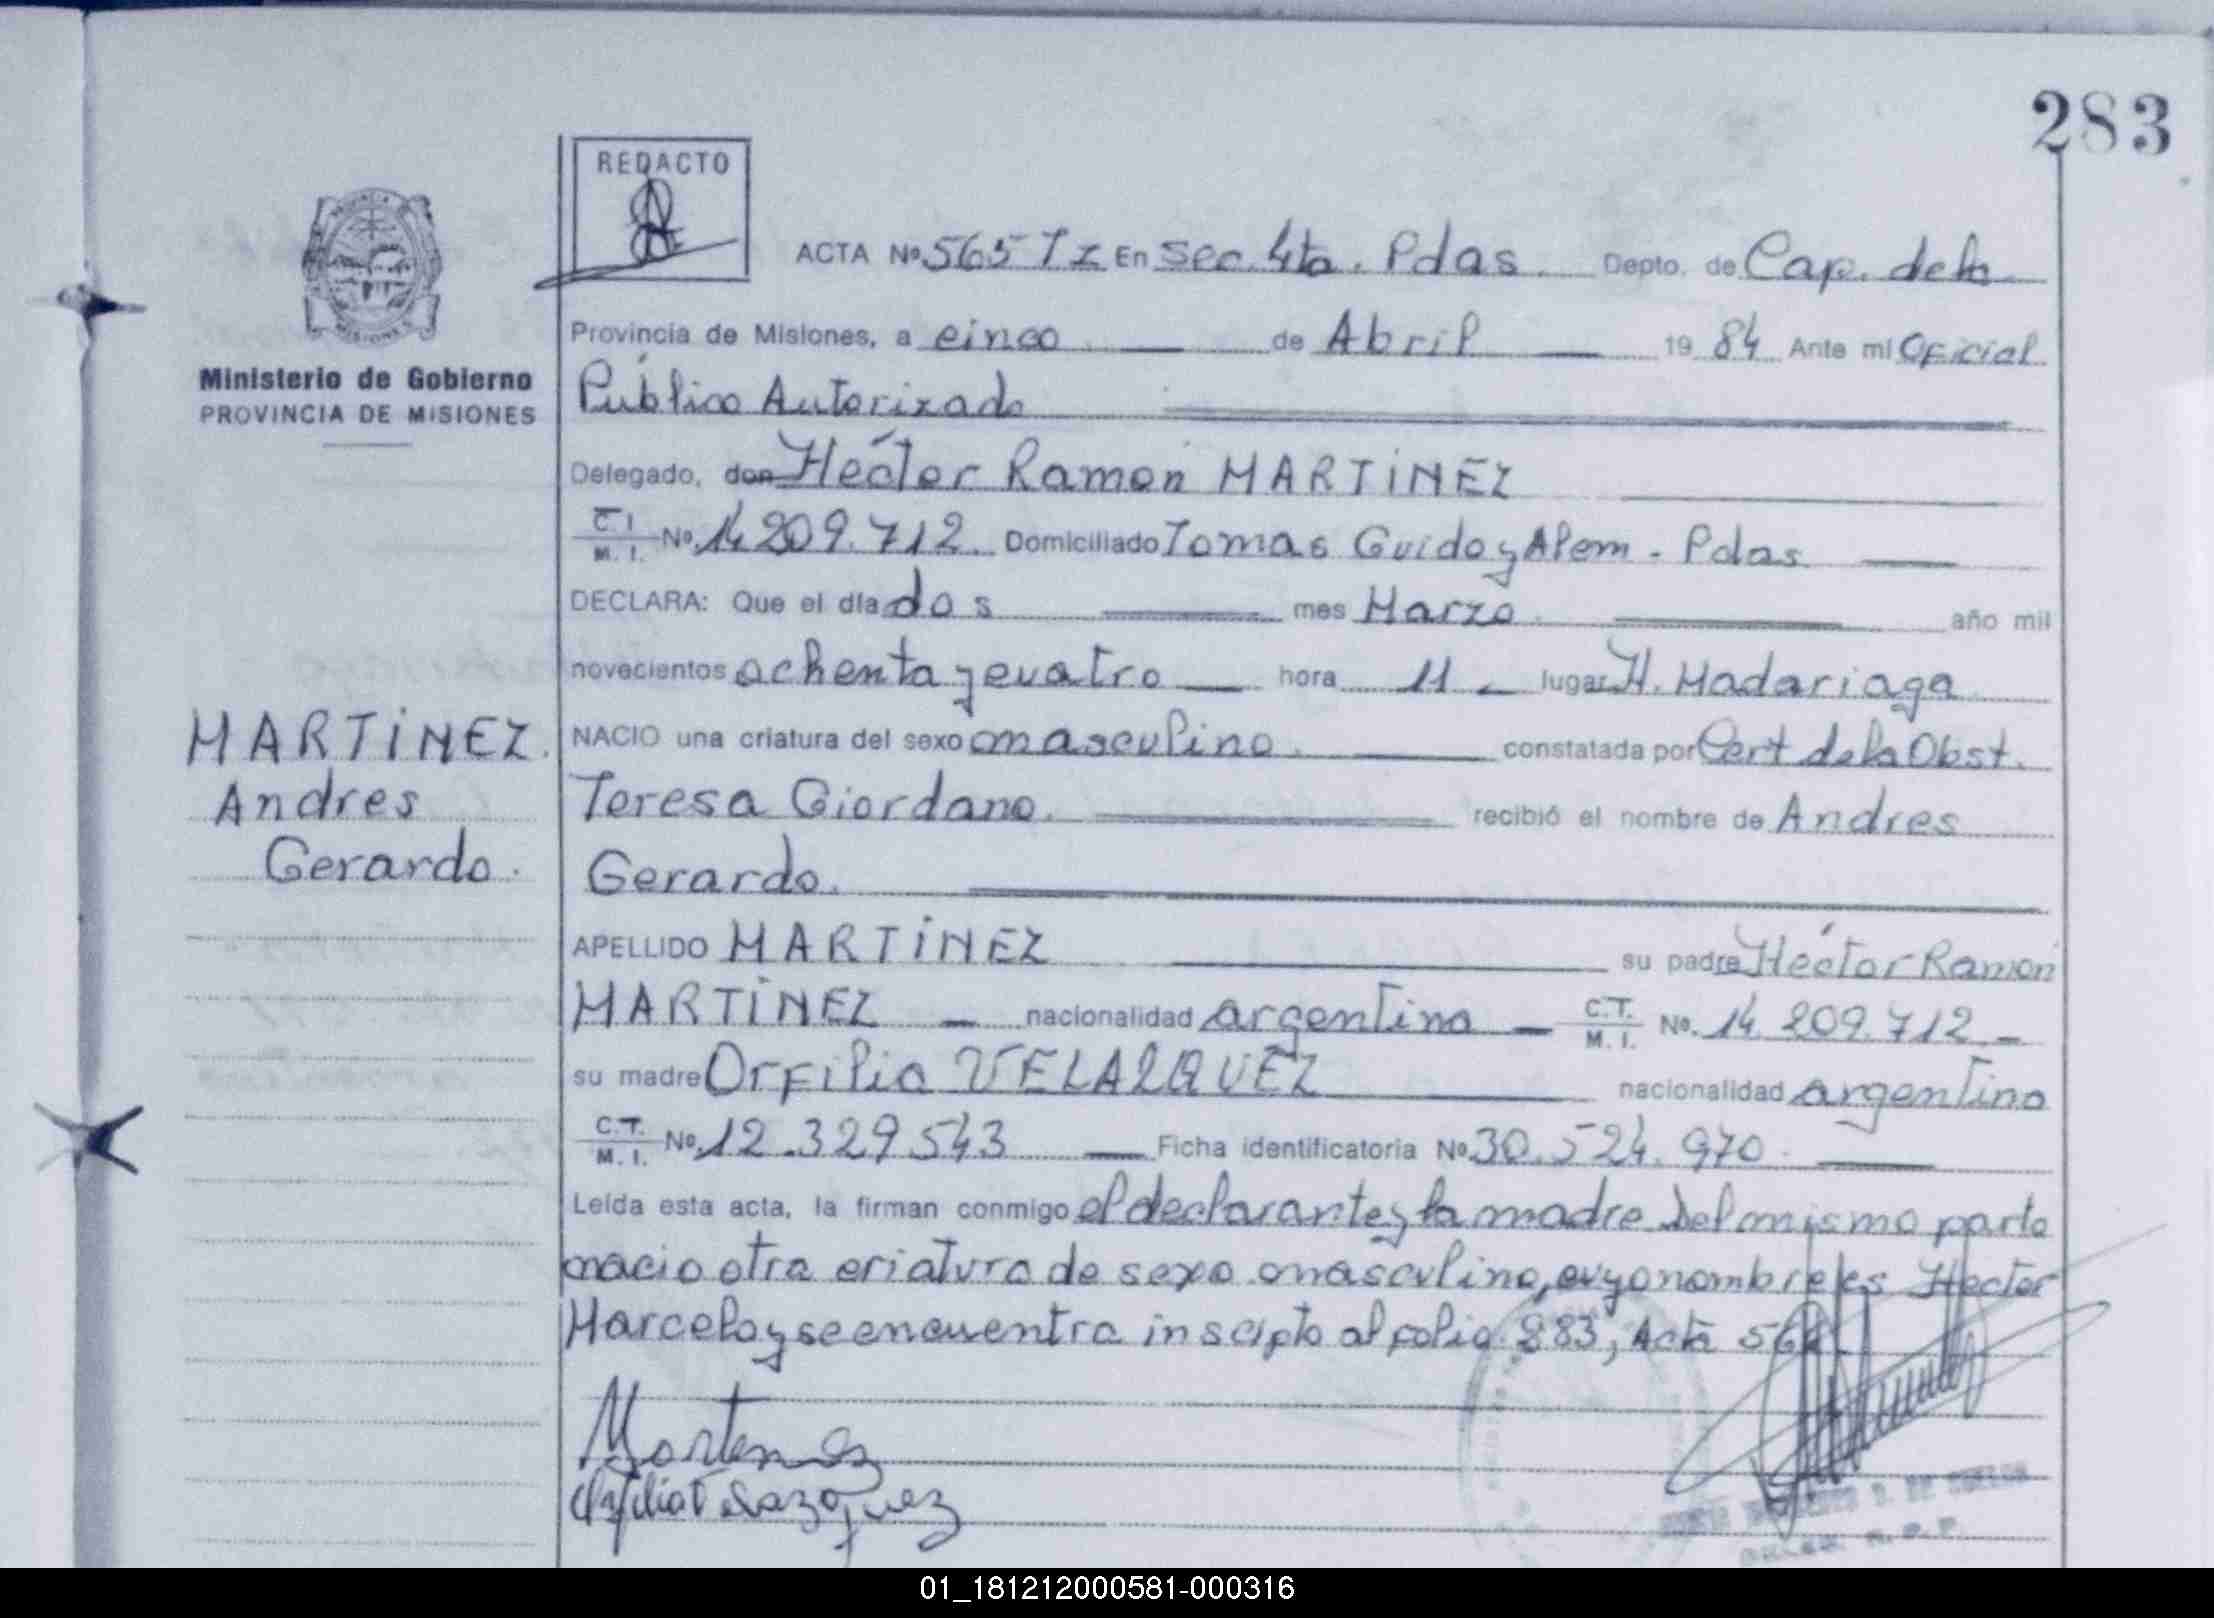 283
REDACTO
PROVINCIA
MISIONES
Ministerio de Gobierno
PROVINCIA DE MISIONES
ACTA Nº 565 Tz En Sec. 4ta. Pdas. Depto. de Cap. de la
Provincia de Misiones, a cinco de Abril 19 84 Ante mi Oficial
Público Autorizado
Delegado, don Héctor Ramón MARTINEZ
C.I. M.I. Nº 14 209.712. Domiciliado Tomas Guido y Alem - Pdas
DECLARA: Que el día dos mes Marzo año mil
novecientos ochenta y cuatro hora 11 lugar H. Madariaga
MARTINEZ.
Andres
Gerardo.
NACIO una criatura del sexo masculino. constatada por Cert de la Obst.
Teresa Giordano. recibió el nombre de Andres
Gerardo.
APELLIDO MARTINEZ su padre Héctor Ramón
MARTINEZ nacionalidad argentina C.T. M.I. Nº. 14. 209.712
su madre Orfilia VELAZQUEZ nacionalidad argentina
C.T. M.I. Nº. 12.329543 Ficha identificatoria Nº 30.524.970.
Leída esta acta, la firman conmigo el declarante y la madre. Del mismo parto
nacio otra criatura de sexo masculino, cuyo nombre es Hector
Marcelo y se encuentra inscipto al folio 283, Acta
Martinez
01_181212000581-000316